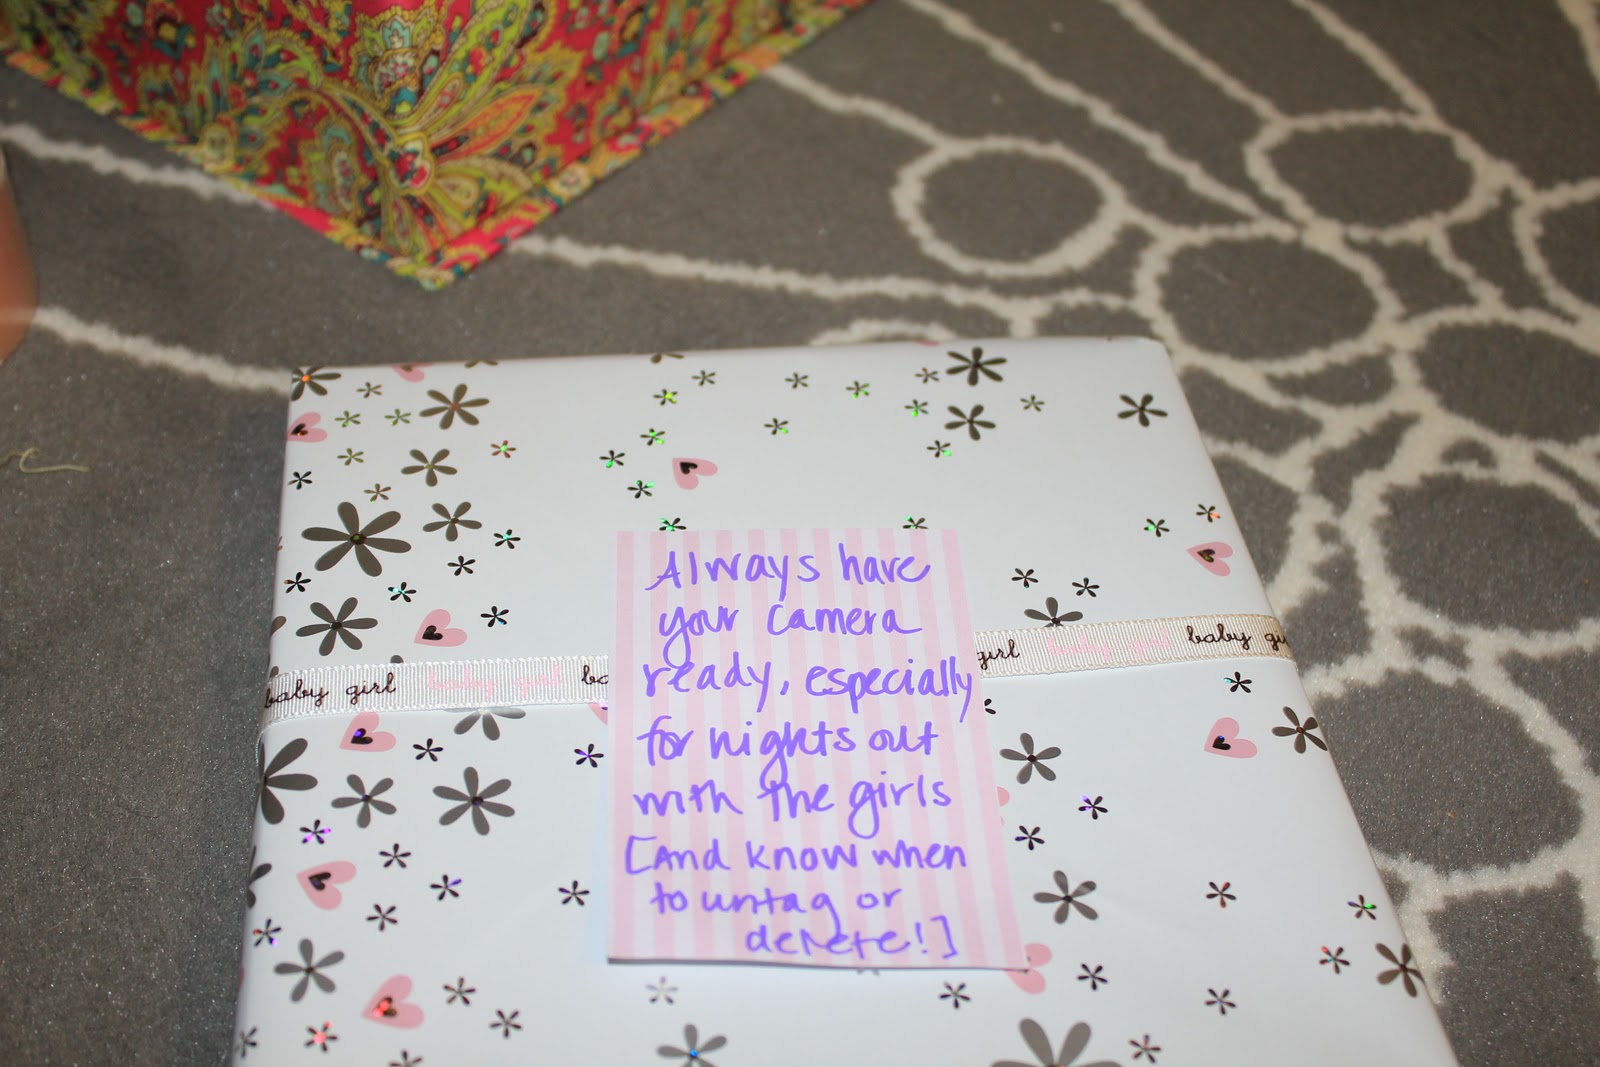 Always have
your camera
ready, especially
for nights out
with the girls
[And know when
to untag or
delete!]
baby girl baby girl
girl baby girl baby